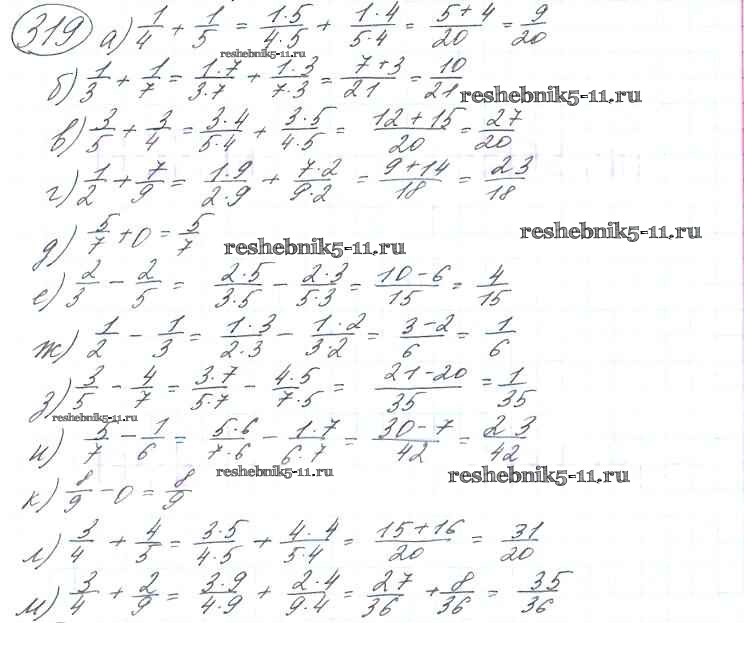 319 а) 1/4 + 1/5 = 1·5/4·5 + 1·4/5·4 = 5+4/20 = 9/20
reshebnik5-11.ru
б) 1/3 + 1/7 = 1·7/3·7 + 1·3/7·3 = 7+3/21 = 10/21
reshebnik5-11.ru
в) 3/5 + 3/4 = 3·4/5·4 + 3·5/4·5 = 12+15/20 = 27/20
г) 1/2 + 7/9 = 1·9/2·9 + 7·2/9·2 = 9+14/18 = 23/18
д) 5/7 + 0 = 5/7
reshebnik5-11.ru
reshebnik5-11.ru
е) 2/3 - 2/5 = 2·5/3·5 - 2·3/5·3 = 10-6/15 = 4/15
ж) 1/2 - 1/3 = 1·3/2·3 - 1·2/3·2 = 3-2/6 = 1/6
з) 3/5 - 4/7 = 3·7/5·7 - 4·5/7·5 = 21-20/35 = 1/35
reshebnik5-11.ru
и) 5/7 - 1/6 = 5·6/7·6 - 1·7/6·7 = 30-7/42 = 23/42
reshebnik5-11.ru
reshebnik5-11.ru
к) 8/9 - 0 = 8/9
л) 3/4 + 4/5 = 3·5/4·5 + 4·4/5·4 = 15+16/20 = 31/20
м) 3/4 + 2/9 = 3·9/4·9 + 2·4/9·4 = 27/36 + 8/36 = 35/36